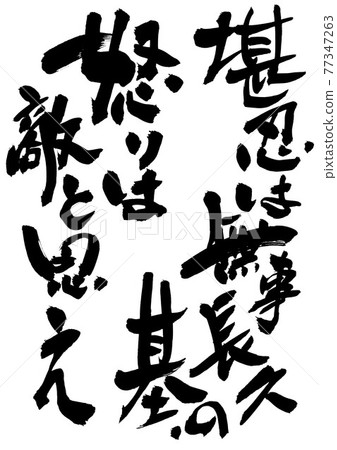 堪忍は無事長久の
基
怒りは
敵と思え
PIXTA
77347263